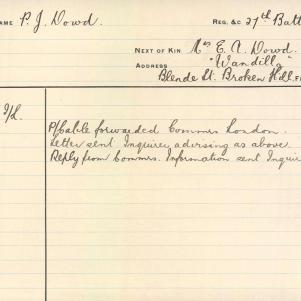 NAME P. J. Dowd. REG. &C 27th Batt
NEXT OF KIN Mrs E. A. Dowd.
ADDRESS "Wandilla"
Blende St. Broken Hill.
P/Cable forwarded Commrs London.
Letter sent Inquirer advising as above
Reply from Commrs. Information sent Inquir